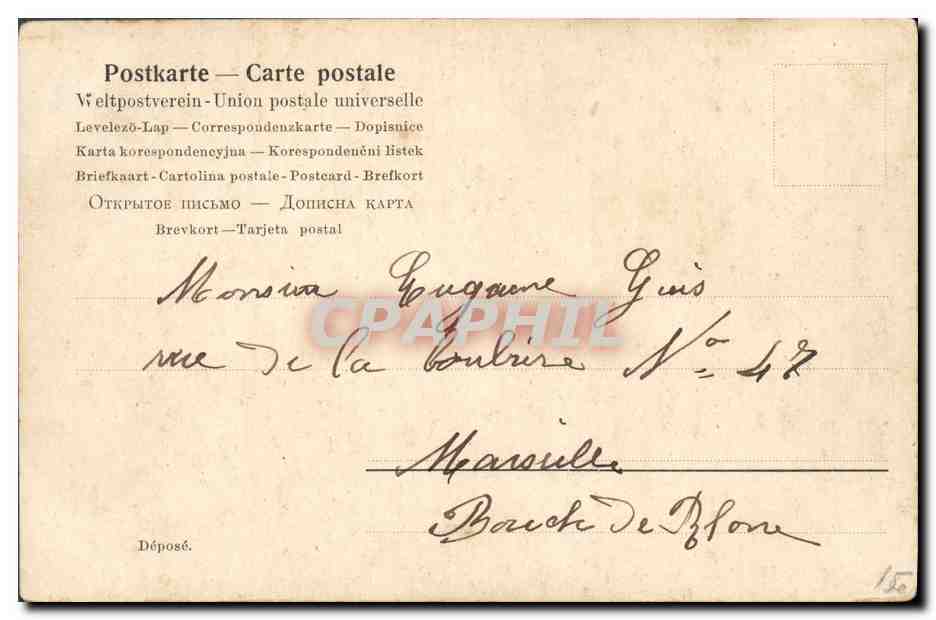 Postkarte — Carte postale
Weltpostverein - Union postale universelle
Levelező-Lap — Correspondenzkarte — Dopisnice
Karta korespondencyjna — Korespondenční listek
Briefkaart - Cartolina postale - Postcard - Brefkort
Открытое письмо — Дописна карта
Brevkort — Tarjeta postal
Monsieur Eugène
CPAPHIL
rue de la No 47
Marseille
Bouch de Rhone
Déposé.